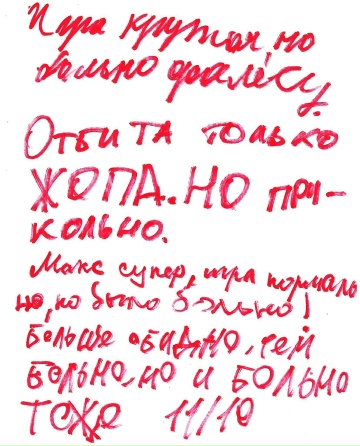 Игра крутая, но
больно
Отбита только
ЖОПА. НО при-
кольно.
Макс супер, игра нормаль
но, но было больно!
Больше обидно, чем
больно, но и больно
тоже 11/10